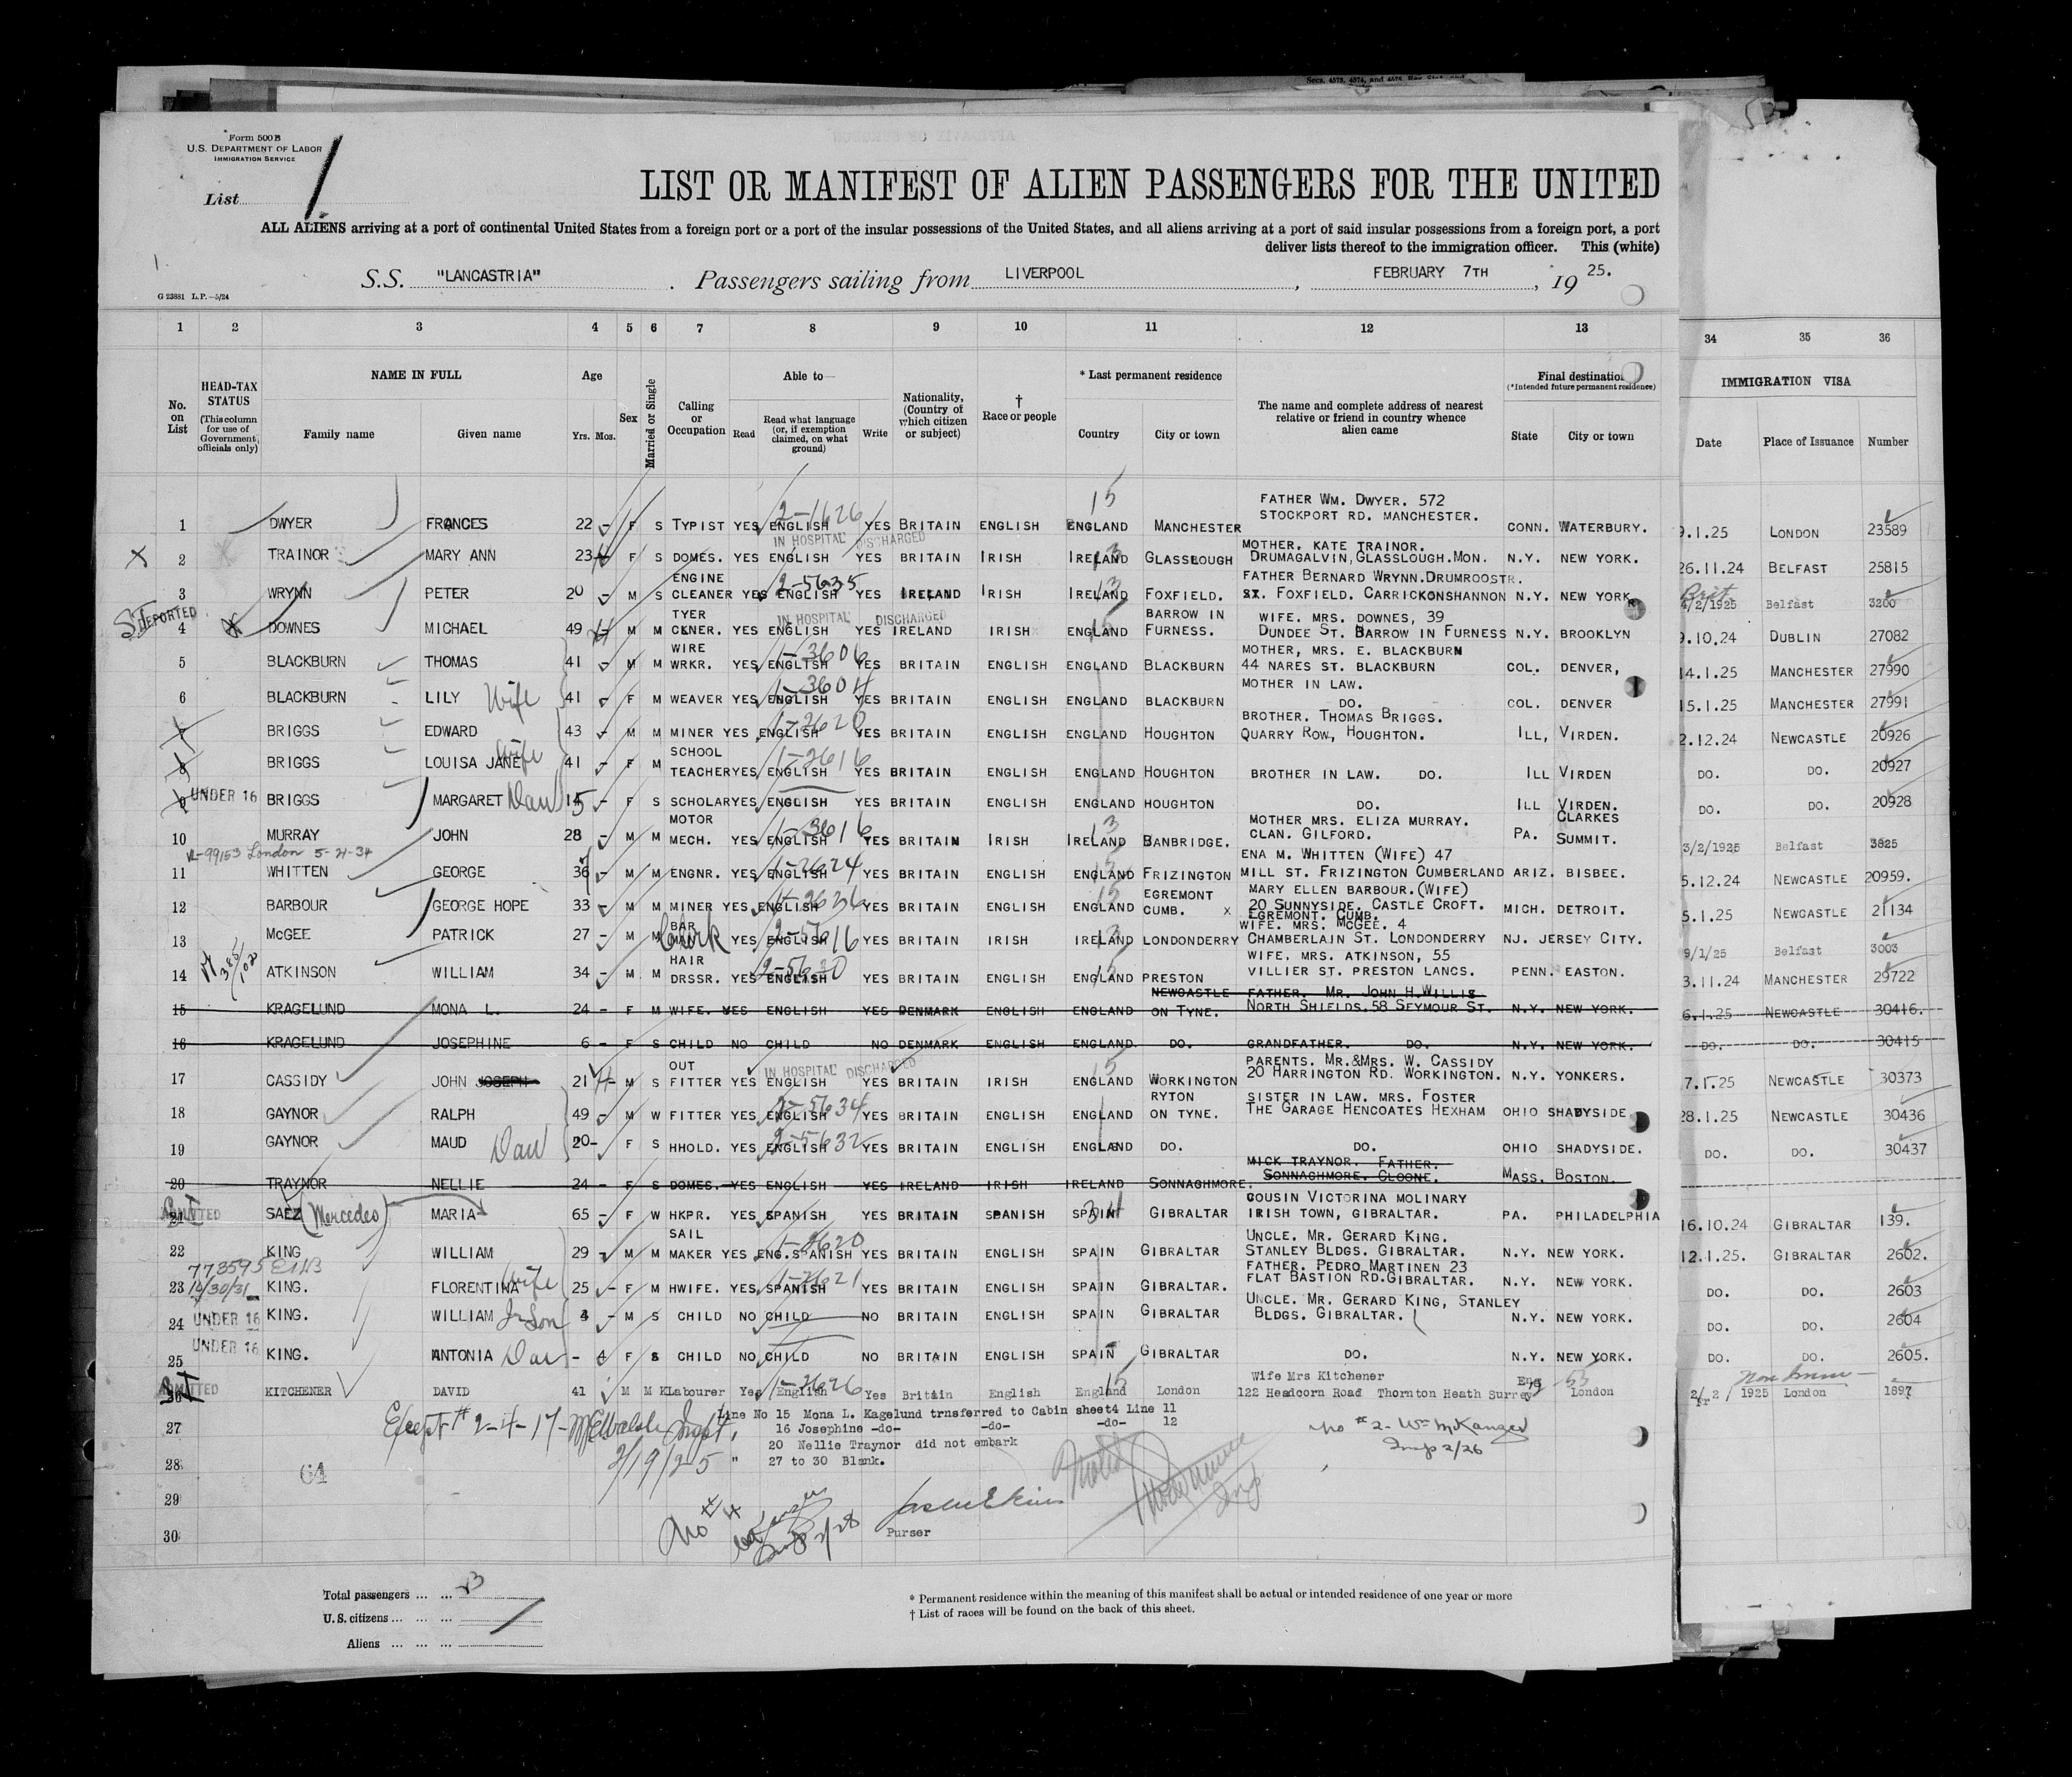 Secs. 4573, 4574, and 4575, Rev. Stat.
Form 500 B
U.S. DEPARTMENT OF LABOR
IMMIGRATION SERVICE
List 1
LIST OR MANIFEST OF ALIEN PASSENGERS FOR THE UNITED
ALL ALIENS arriving at a port of continental United States from a foreign port or a port of the insular possessions of the United States, and all aliens arriving at a port of said insular possessions from a foreign port, a port
deliver lists thereof to the immigration officer. This (white)
S.S. "LANCASTRIA". Passengers sailing from LIVERPOOL, FEBRUARY 7TH, 19 25.
G 23881 L.P.—5/24
1 2 3 4 5 6 7 8 9 10 11 12 13 34 35 36
No. on List
HEAD-TAX STATUS (This column for use of Government officials only)
NAME IN FULL
Family name Given name
Age
Yrs. Mos.
Sex
Married or Single
Calling or Occupation
Able to—
Read Read what language (or, if exemption claimed, on what ground) Write
Nationality, (Country of which citizen or subject)
† Race or people
* Last permanent residence
Country City or town
The name and complete address of nearest relative or friend in country whence alien came
Final destination
(*Intended future permanent residence)
State City or town
IMMIGRATION VISA
Date Place of Issuance Number
2-1626 15 FATHER WM. DWYER. 572
1 DWYER FRANCES 22 - F S TYPIST YES ENGLISH YES BRITAIN ENGLISH ENGLAND MANCHESTER STOCKPORT RD. MANCHESTER. CONN. WATERBURY. 9.1.25 LONDON 23589
IN HOSPITAL DISCHARGED MOTHER. KATE TRAINOR.
X 2 TRAINOR MARY ANN 23 F S DOMES. YES ENGLISH YES BRITAIN IRISH IRELAND GLASSLOUGH DRUMAGALVIN, GLASSLOUGH. MON. N.Y. NEW YORK. 26.11.24 BELFAST 25815
ENGINE 2-5635 13 FATHER BERNARD WRYNN. DRUMROOSTR. Brit
3 WRYNN PETER 20 - M S CLEANER YES ENGLISH YES IRELAND IRISH IRELAND FOXFIELD. FOXFIELD. CARRICKONSHANNON N.Y. NEW YORK 4/2/1925 Belfast 3200
DEPORTED TYER IN HOSPITAL DISCHARGED BARROW IN WIFE. MRS. DOWNES, 39
4 DOWNES MICHAEL 49 M M CKNER. YES ENGLISH YES IRELAND IRISH ENGLAND FURNESS. DUNDEE ST. BARROW IN FURNESS N.Y. BROOKLYN 9.10.24 DUBLIN 27082
WIRE 1-3606 MOTHER, MRS. E. BLACKBURN
5 BLACKBURN THOMAS 41 - M M WRKR. YES ENGLISH YES BRITAIN ENGLISH ENGLAND BLACKBURN 44 NARES ST. BLACKBURN COL. DENVER, 14.1.25 MANCHESTER 27990
1-3604 MOTHER IN LAW.
6 BLACKBURN LILY Wife 41 - F M WEAVER YES ENGLISH YES BRITAIN ENGLISH ENGLAND BLACKBURN DO. COL. DENVER 15.1.25 MANCHESTER 27991
1-2620 BROTHER. THOMAS BRIGGS.
7 BRIGGS EDWARD 43 - M M MINER YES ENGLISH YES BRITAIN ENGLISH ENGLAND HOUGHTON QUARRY ROW, HOUGHTON. ILL, VIRDEN. 2.12.24 NEWCASTLE 20926
SCHOOL 1-2616
8 BRIGGS LOUISA JANE Wife 41 - F M TEACHER YES ENGLISH YES BRITAIN ENGLISH ENGLAND HOUGHTON BROTHER IN LAW. DO. ILL VIRDEN DO. DO. 20927
9 UNDER 16 BRIGGS MARGARET Dau 15 - F S SCHOLAR YES ENGLISH YES BRITAIN ENGLISH ENGLAND HOUGHTON DO. ILL VIRDEN. DO. DO. 20928
MOTOR 1-3616 13 MOTHER MRS. ELIZA MURRAY. CLARKES
10 MURRAY JOHN 28 - M M MECH. YES ENGLISH YES BRITAIN IRISH IRELAND BANBRIDGE. CLAN. GILFORD. PA. SUMMIT. 3/2/1925 Belfast 3825
VL-99153 London 5-21-34 1-2624 15 ENA M. WHITTEN (WIFE) 47
11 WHITTEN GEORGE 36 - M M ENGNR. YES ENGLISH YES BRITAIN ENGLISH ENGLAND FRIZINGTON MILL ST. FRIZINGTON CUMBERLAND ARIZ. BISBEE. 5.12.24 NEWCASTLE 20959.
1-2636 15 EGREMONT MARY ELLEN BARBOUR. (WIFE)
12 BARBOUR GEORGE HOPE 33 - M M MINER YES ENGLISH YES BRITAIN ENGLISH ENGLAND CUMB. X 20 SUNNYSIDE. CASTLE CROFT. EGREMONT. CUMB. MICH. DETROIT. 5.1.25 NEWCASTLE 21134
BAR 2-5616 13 WIFE. MRS. MCGEE. 4
13 MCGEE PATRICK 27 - M M Clerk YES ENGLISH YES BRITAIN IRISH IRELAND LONDONDERRY CHAMBERLAIN ST. LONDONDERRY NJ. JERSEY CITY. 9/1/25 Belfast 3003
HAIR 2-5620 15 WIFE. MRS. ATKINSON, 55
14 ATKINSON WILLIAM 34 - M M DRSSR. YES ENGLISH YES BRITAIN ENGLISH ENGLAND PRESTON VILLIER ST. PRESTON LANCS. PENN. EASTON. 3.11.24 MANCHESTER 29722
NEWCASTLE FATHER. MR. JOHN H. WILLIS
15 KRAGELUND MONA L. 24 - F M WIFE. YES ENGLISH YES DENMARK ENGLISH ENGLAND ON TYNE. NORTH SHIELDS. 58 SEYMOUR ST. N.Y. NEW YORK. 6.1.25 NEWCASTLE 30416.
16 KRAGELUND JOSEPHINE 6 - F S CHILD NO CHILD NO DENMARK ENGLISH ENGLAND. DO. GRANDFATHER. DO. N.Y. NEW YORK. DO. DO. 30415
OUT IN HOSPITAL DISCHARGED 15 PARENTS. MR. & MRS. W. CASSIDY
17 CASSIDY JOHN JOSEPH 21 M S FITTER YES ENGLISH YES BRITAIN IRISH ENGLAND WORKINGTON 20 HARRINGTON RD. WORKINGTON. N.Y. YONKERS. 7.1.25 NEWCASTLE 30373
2-5634 RYTON SISTER IN LAW. MRS. FOSTER
18 GAYNOR RALPH 49 - M W FITTER YES ENGLISH YES BRITAIN ENGLISH ENGLAND ON TYNE. THE GARAGE HENCOATES HEXHAM OHIO SHADYSIDE 28.1.25 NEWCASTLE 30436
2-5632
19 GAYNOR MAUD Dau 20 - F S HHOLD. YES ENGLISH YES BRITAIN ENGLISH ENGLAND DO. DO. OHIO SHADYSIDE. DO. DO. 30437
MICK TRAYNOR. FATHER.
20 TRAYNOR NELLIE 24 - F S DOMES. YES ENGLISH YES IRELAND IRISH IRELAND SONNAGHMORE. SONNAGHMORE. CLOONE. MASS. BOSTON.
ADMITTED 34 COUSIN VICTORINA MOLINARY
21 SAEZ (Mercedes) MARIA 65 - F W HKPR. YES SPANISH YES BRITAIN SPANISH SPAIN GIBRALTAR IRISH TOWN, GIBRALTAR. PA. PHILADELPHIA 16.10.24 GIBRALTAR 139.
SAIL 1-2620 UNCLE. MR. GERARD KING.
22 KING WILLIAM 29 - M M MAKER YES ENG. SPANISH YES BRITAIN ENGLISH SPAIN GIBRALTAR STANLEY BLDGS. GIBRALTAR. N.Y. NEW YORK. 12.1.25. GIBRALTAR 2602.
1-2621 FATHER. PEDRO MARTINEN 23
23 10/30/31 KING. FLORENTINA Wife 25 - F M HWIFE. YES SPANISH YES BRITAIN ENGLISH SPAIN GIBRALTAR. FLAT BASTION RD. GIBRALTAR. N.Y. NEW YORK. DO. DO. 2603
UNCLE. MR. GERARD KING, STANLEY
24 UNDER 16 KING. WILLIAM Jr Son 4 - M S CHILD NO CHILD NO BRITAIN ENGLISH SPAIN GIBRALTAR BLDGS. GIBRALTAR. N.Y. NEW YORK. DO. DO. 2604
25 UNDER 16 KING. ANTONIA Dau - 4 F S CHILD NO CHILD NO BRITAIN ENGLISH SPAIN GIBRALTAR DO. N.Y. NEW YORK. DO. DO. 2605.
ADMITTED 1-2626 15 Wife Mrs Kitchener Eng
26 KITCHENER DAVID 41 M M Labourer Yes English Yes Britain English England London 122 Headcorn Road Thornton Heath Surrey London 2/2/1925 London 1897
27 Except # 2-4-17- Line No 15 Mona L. Kagelund trnsferred to Cabin sheet4 Line 11
16 Josephine -do- -do- 12
20 Nellie Traynor did not embark
28 64 2/19/25 " 27 to 30 Blank.
No #2- Wm McKanged
Insp 2/26
29
No #4
Insp 2/28
30 Purser
Total passengers ... ... 23
U.S. citizens ... ... ...
Aliens ... ... ...
* Permanent residence within the meaning of this manifest shall be actual or intended residence of one year or more
† List of races will be found on the back of this sheet.